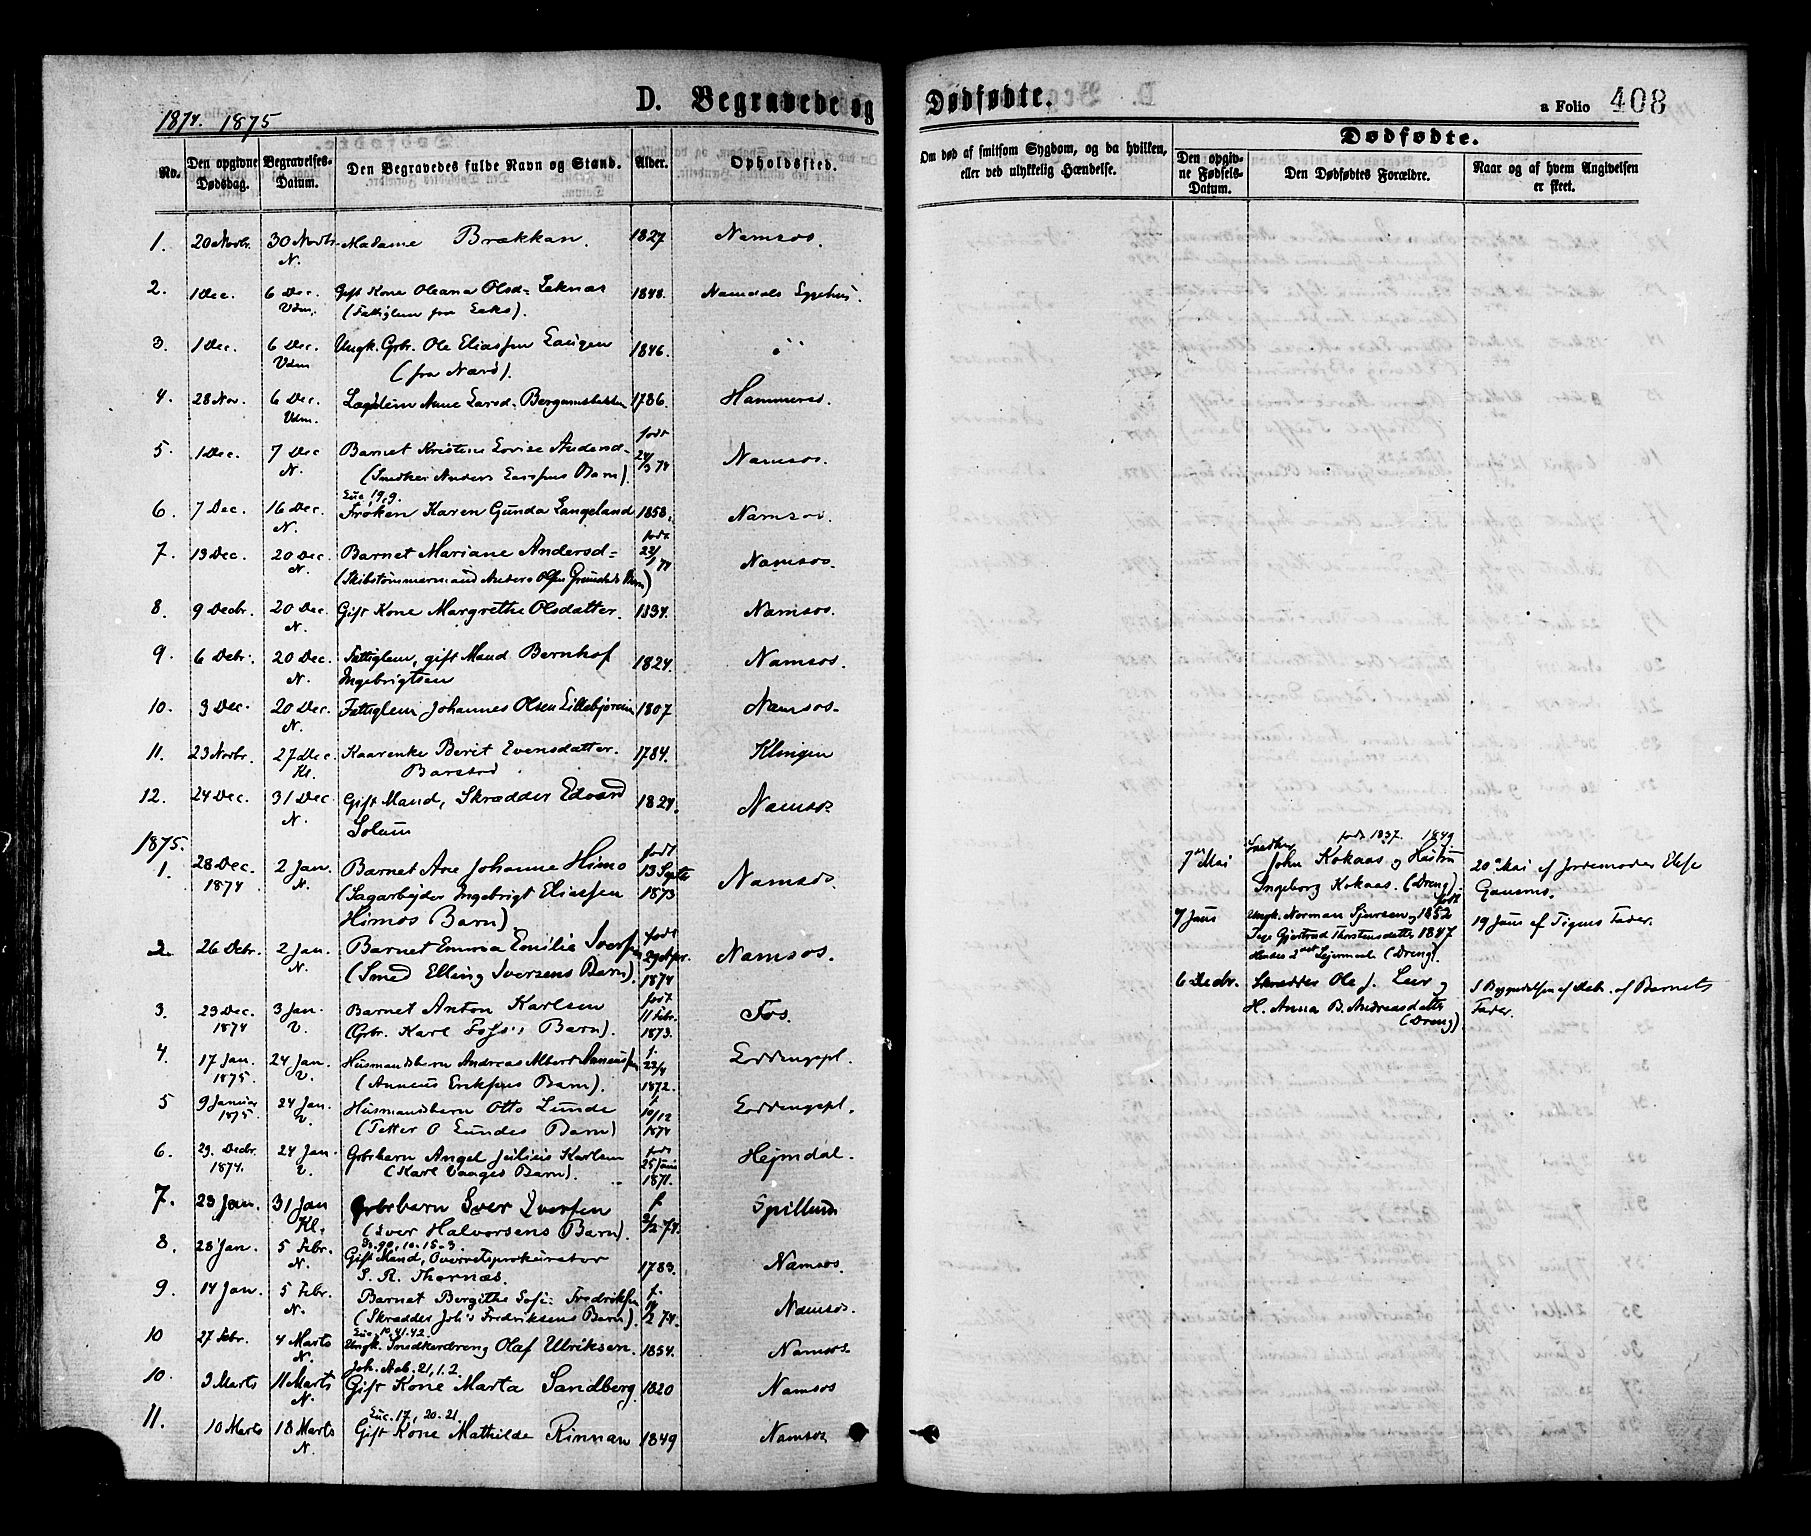 1874. 1875
D. Begravede og Dødfødte.
a Folio 408
No.
Den opgivne Dødsdag.
Begravelses-Datum.
Den Begravedes fulde Navn og Stand.
Alder.
Opholdssted.
Om død af smitsom Sygdom, og da hvilken, eller ved ulykkelig Hændelse.
Dødfødte.
Den opgivne Fødsels-Datum.
Den Dødfødtes Forældre.
Naar og af hvem Angivelsen er skeet.
1. 20 Novbr. 30 Novbr. Madame Brækkan. 1827 Namsos.
N.
2. 1 Dec. 6 Dec. Gift Kone Oleana Olsd- Leknæs 1848. Namdals Sygehus.
Vdm. (Fattiglem fra Leks).
3. 1 Dec. 6 Dec. Ungk. Grbr. Ole Eliassen Laugen 1846. "
Vdm (fra Nærø).
4. 28 Nov. 6 Dec. Lægdslem Anne Larsd. 1786. Hammeres.
Vdm.
5. 1 Dec. 7 Dec Barnet Kristine Lovise Andersd- født 24/3 74 Namsos.
N. (Snedker Anders Barn).
Luc. 19, 9.
6. 7 Dec. 16 Dec. Frøken Karen Gunda Langeland 1858. Namsos.
N.
7. 13 Dec. 20 Dec. Barnet Mariane Andersd= født 22/1 74 Namsos.
N. (Skibstømmermand Anders Olsen Barn)
8. 9 Decbr. 20 Dec. Gift Kone Margrethe Olsdatter. 1834. Namsos.
N.
9. 6 Debr. 20 Dec. Fattiglem, gift Mand Bernhof 1824. Namsos.
N. Ingebrigtsen
10. 3 Dec. 20 Dec. Fattiglem Johannes Olsen 1807 Namsos.
N.
11. 23 Novbr. 27 Dec. Kaarenke Berit Evensdatter. 1784. Klingen
Kl. Barstad
12. 24 Dec. 31 Dec. Gift Mand, Skrædder Edvard 1824. Namsos
N. Solum
1875.
1. 28 Dec. 2 Jan. Barnet Ane Johanne Himo født 13 Septbr 1873 Namsos.
1874 N. (Sagarbejder Ingebrigt Eliassen
Himos Barn)
2. 26 Debr. 2 Jan. Barnet Emma Emilie Iversen født 29 Apr. 1874 Namsos.
N. (Smed Elling Iversens Barn).
3. 29 Dec. 3 Jan. Barnet Anton Karlsen født 11 Febr. 1873. Fos.
1874 V. (Grbr. Karl Foss's Barn).
4. 17 Jan. 24 Jan. Husmandsbarn Andreas Albert f. 22/4 1872. Loddengspl.
1875. V. (Anneus Eriksens Barn).
5 9 Januar 24 Jan. Husmandsbarn Otto Lunde f. 10/12 1874 Loddengspl.
1875. V. (Petter O Lundes Barn)
6. 29. Decbr. 24 Jan. Grbrbarn Angel Julius Karlsen født 25 Juni 1871. Hejmdal.
1874. V. (Karl Vaages Barn).
7. 23 Jan. 31 Jan Grbrbarn Iver Iversen f. 9/2 74. Spillum
Kl. (Iver Halvorsens Barn).
Ps. 90, 10. 15-3.
8. 28 Jan. 5 Febr. Gift Mand, Overretsprokurator 1783. Namsos.
N. S. R. Thornæs.
9. 14 Jan. 5 Febr. Barnet Bergithe Sofi: Fredriksen f. 14/2 74. Namsos.
N. (Skrædder Joh's Fredriksens Barn).
Luc. 10. 41. 42.
10 27 Febr. 4 Marts Ungk. Snedkerdreng Olaf Ulriksen. 1854. Namsos.
N.
Joh. Aab. 21, 1. 2.
10. 3 Marts 11 Marts Gift Kone Marta Sandberg. 1820 Namsos
N.
Luc. 17, 20-21.
11. 10 Marts 18 Marts Gift Kone Mathilde Rinnan 1849 Namsos
N.
7de Mai Snedker født 1837. 1849
John Kokaas og Hustru 20 Mai af Jordemoder Else
Ingeborg Kokaas. (Dreng). Gansmo.
7 Juni Ungk. Norman Sjursen og født 1852 19 Juni af Pigens Fader.
Pige Gjertrud Thorstensdatter 1847
Hendes 2det Lejermaal (Dreng).
6 Decbr. Skrædder Ole J. Leer og i Begyndelsen af Debr. af Barnets
H. Anna B. Andreasdatter Fader.
(Dreng)